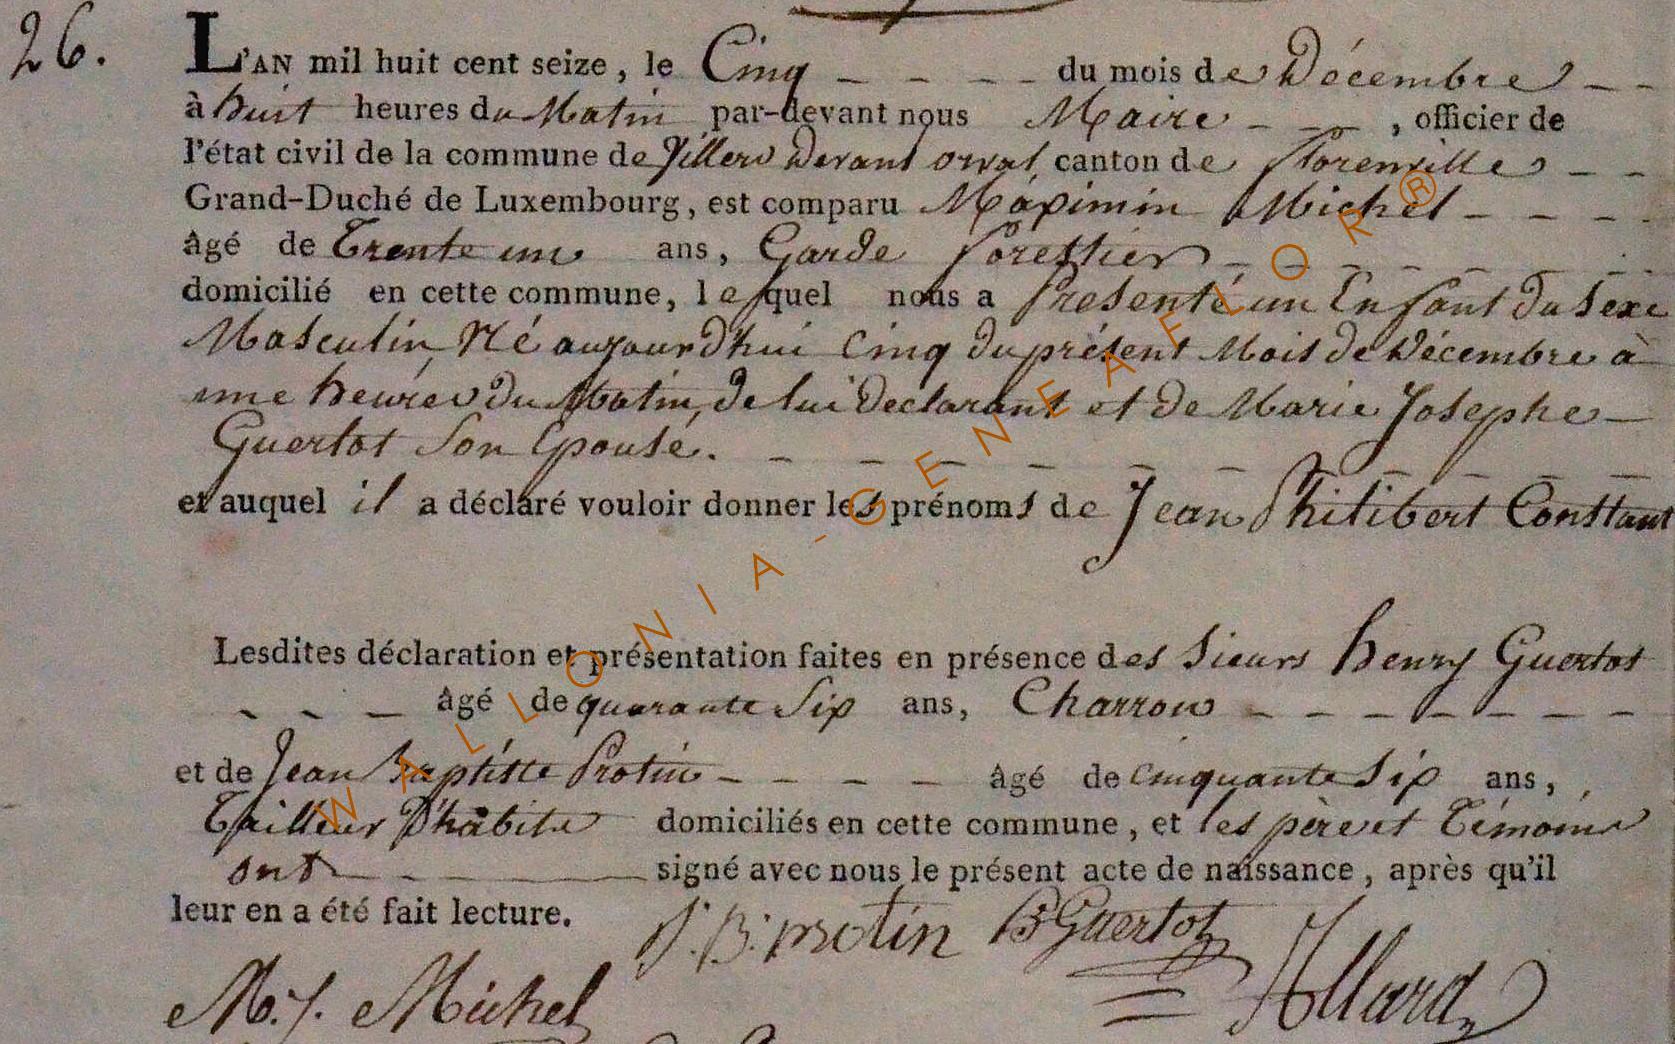 26.
L'AN mil huit cent seize, le Cinq du mois de Décembre
à huit heures du Matin par-devant nous Maire, officier de
l'état civil de la commune de Villers Devant orval, canton de florenville
Grand-Duché de Luxembourg, est comparu Maximin Michel
âgé de Trente un ans, Garde forestier
domicilié en cette commune, lequel nous a Presenté un Enfant du Sexe
Masculin, Né aujourd'hui Cinq du présent Mois de Décembre à
une heures du Matin, de lui Declarant et de Marie Josephe
Guertot Son Epouse.
et auquel il a déclaré vouloir donner les prénoms de Jean Philibert Constant
Lesdites déclaration et présentation faites en présence des Sieurs henry Guertot
âgé de quarante Six ans, Charron
et de Jean Baptiste Protin âgé de cinquante Six ans,
Tailleur D'habits domiciliés en cette commune, et les père et Témoins
ont signé avec nous le présent acte de naissance, après qu'il
leur en a été fait lecture.
J. B. protin Guertot
M. J. Michel Allard
WALLONIA-GENEAFLOR®